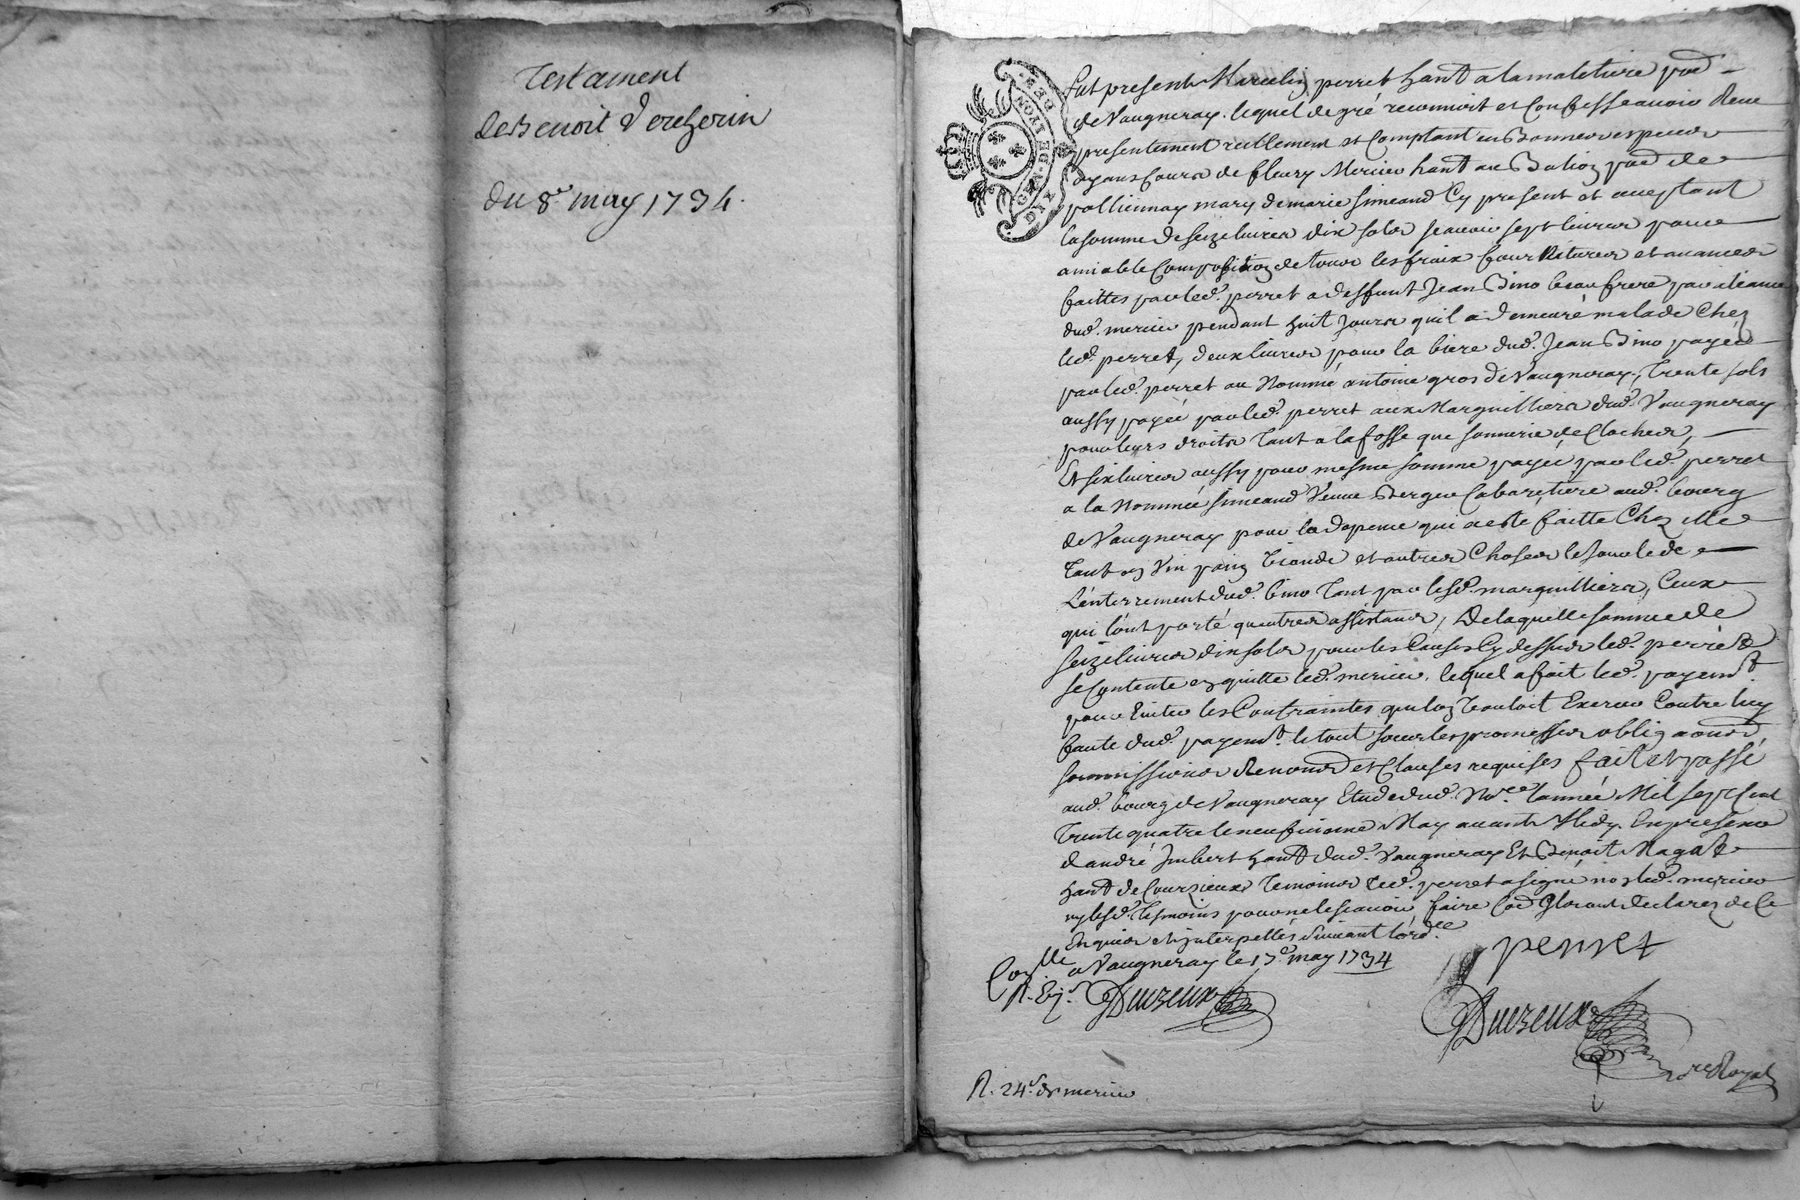 Testament
de Benoit Vercherin
du 8e may 1734.
Fut present Marcelin perret hant a la maletiere psse
de Vaugneray lequel de gré reconnoit et Confesse avoir Receu
presentement reellement et Comptant en Bonnes especes
ayans Cours de fleury Mercier hant au Bation psse de
pollionnay mary de marie Simeand Cy present et acceptant
la somme de Seize livres dix sols scavoir sept livres pour
amiable Composition de tous les fraix fournitures et avances
faittes par led. perret a deffunt Jean Bino beau frere par aliance
dud. mercier pendant huit Jours quil a demeuré malade Chez
led. perret, deux livres pour la biere dud. Jean Bino payée
par led. perret au Nommé antoine gros de Vaugneray, Trente sols
aussy payée par led. perret aux Marguilliers dud. Vaugneray
pour leurs droits Tant a la fosse que sonnerie de Cloches,
Et six livres aussy pour mesme somme payée par led. perret
a la Nommée Simeand Veuve Berger Cabaretiere aud. bourg
de Vaugneray pour la depense qui a esté faitte Chez elle
Tant en Vin pain Viande et autres Choses le Jour de
L'enterrement dud. bino Tant par lesd. marguilliers, Ceux
qui l'ont porté qu'autres assistans, De laquelle somme de
seize livres dix sols pour les Causes Cy dessus led. perret
se Contente en quitte led. mercier, lequel a fait led. payemt
pour Eviter les Contraintes qu'on Vouloit Exercer Contre luy
faute dud. payemt. le tout sous les promesses obligaons,
soumissions Renons et Clauses requises fait et passé
aud. bourg de Vaugneray Etude dud. Nore L'année Mil sept Cent
Trente quatre le neufvieme May avant Midy En presence
d'andré Imbert hant dud. Vaugneray Et Benoit Magat
hant de Courzieux Temoins led. perret a signé non led. mercier
ny lesd. Tesmoins pour ne le scavoir faire Declarez de Ce
Enquis et interpellés suivant lordce
perret
Conlle a Vaugneray le 17e may 1734
Duezeux
Duezeux
nore Royal
R. 24 s. dr mercier